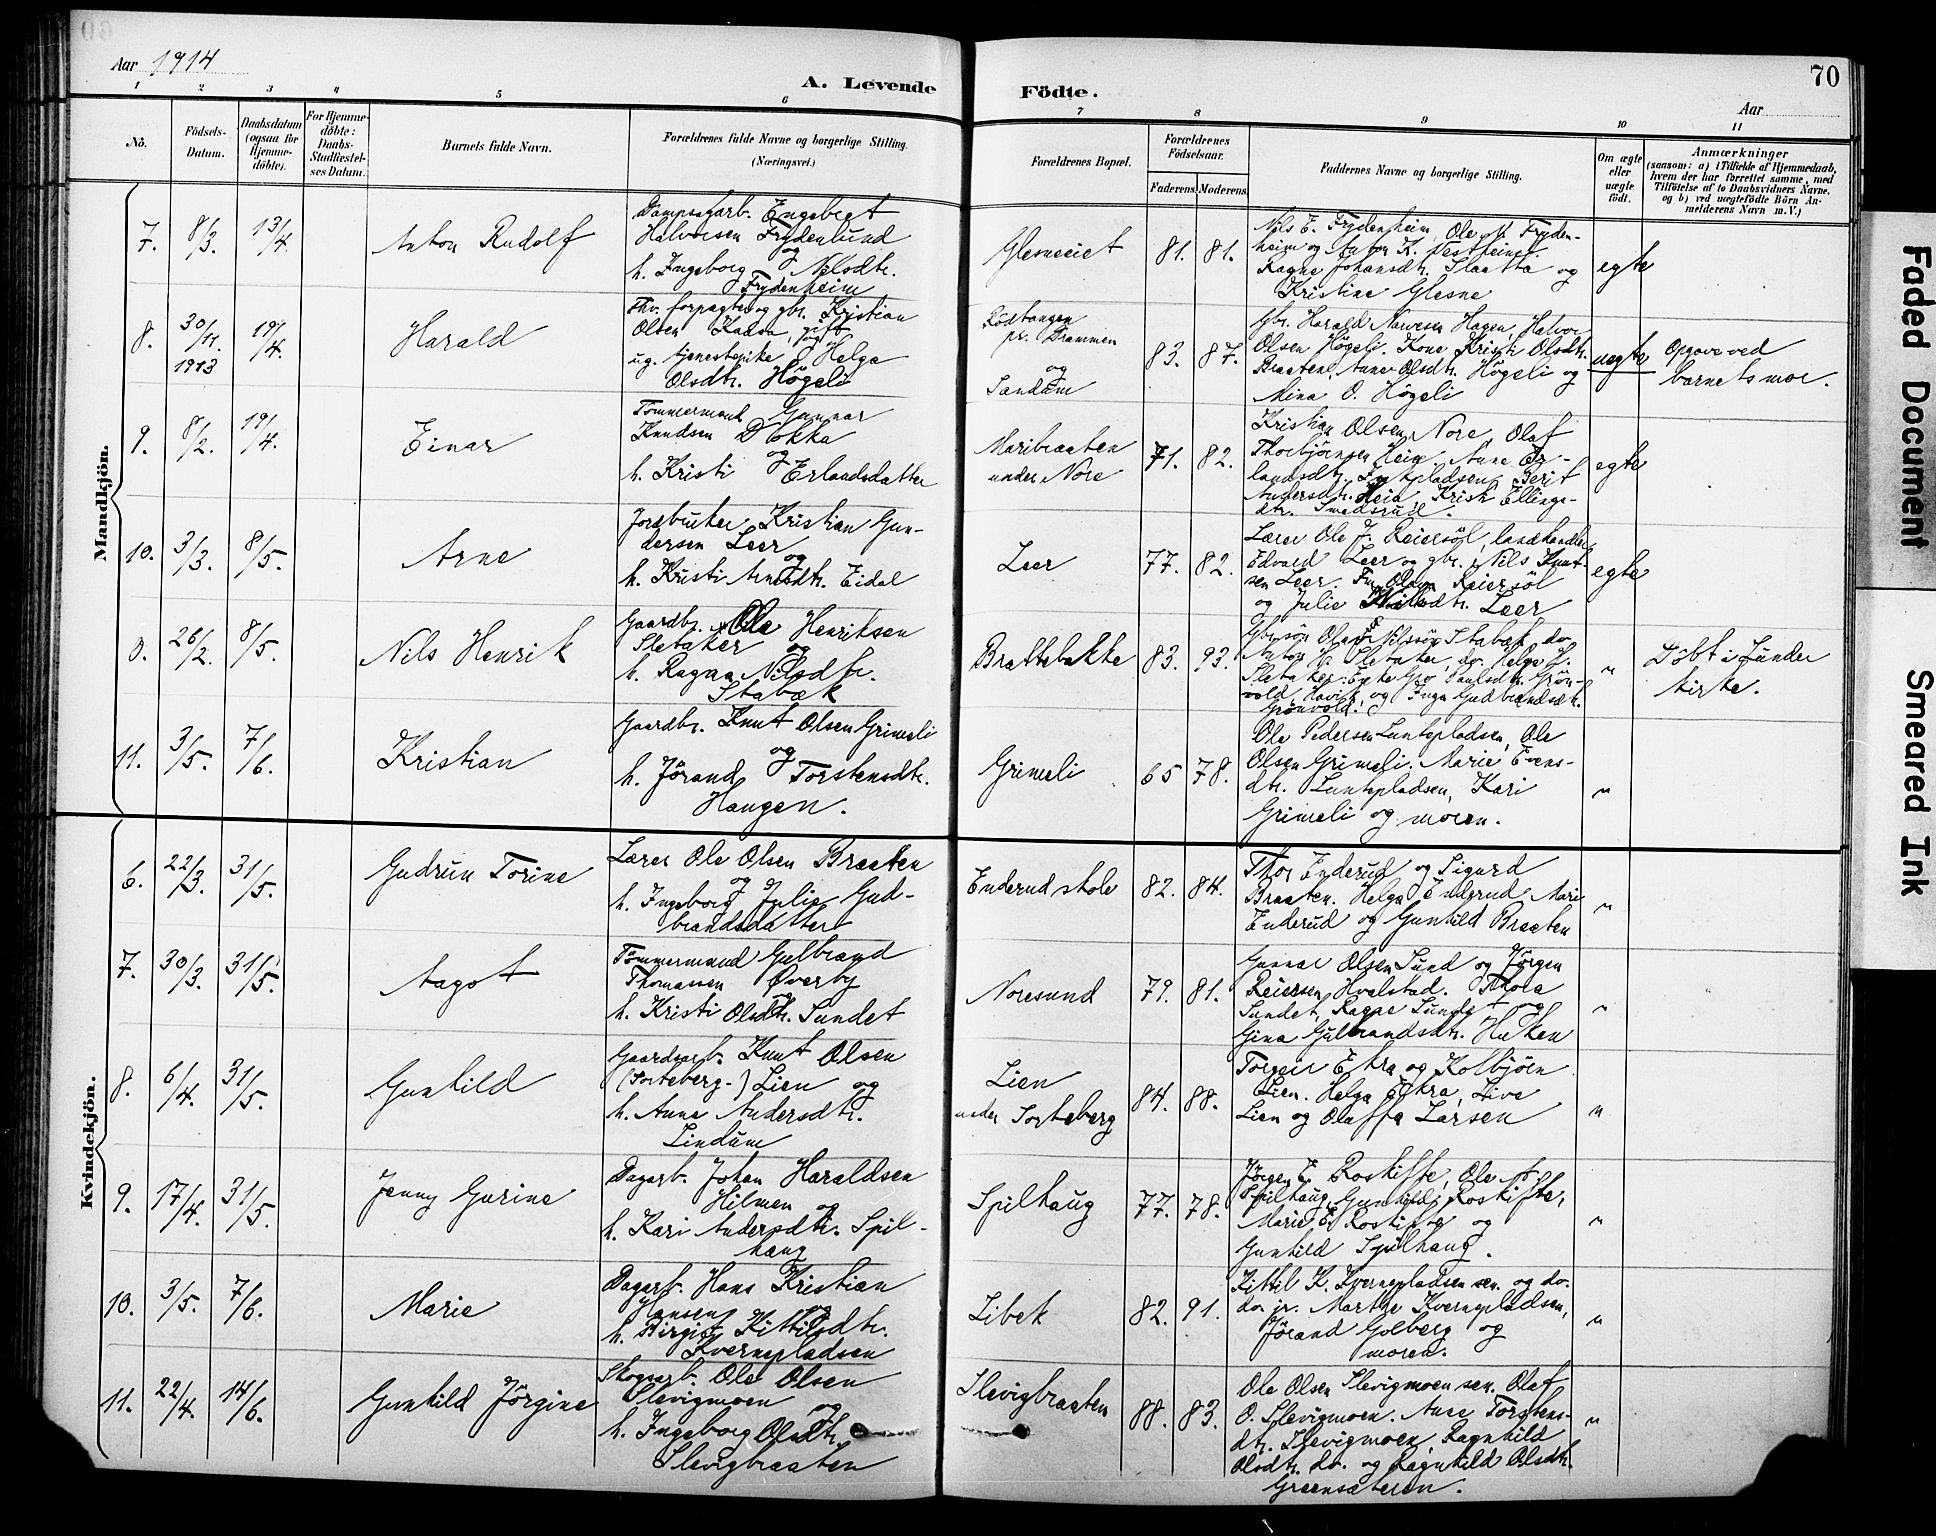 Aar 1914
A. Levende Födte.
70
Aar
1 2 3 4 5 6 7 8 9 10 11
No.
Födsels-
Datum.
Daabsdatum
(ogsaa for
Hjemme-
döbte).
For Hjemme-
döbte:
Daabs-
Stadfæstel-
ses Datum.
Barnets fulde Navn.
Forældrenes fulde Navne og borgerlige Stilling.
(Næringsvei.)
Forældrenes Bopæl.
Forældrenes
Födselsaar.
Faderens.
Moderens.
Faddernes Navne og borgerlige Stilling.
Om ægte
eller
uægte
födt.
Anmærkninger
(saasom: a) i Tilfælde af Hjemmedaab,
hvem der har forrettet samme, med
Tilföielse af to Daabsvidners Navne.
og b) ved uægtefödte Börn An-
melderens Navn m. V.)
Mandkjön.
7. 8/3. 13/4.
Anton Rudolf
Dampsagarb. Engebret
Halvorsen Frydenlund
og
h. Ingeborg Nilsdtr.
Frydenheim
Glesneeiet
81. 81.
Nils E. Frydenheim, Ole N. Fryden-
heim og Anton K. Vestheim.
Ragne Johansdt. Slaatta og
Kristine Glesne
egte
8. 30/11. 1913 19/4.
Harald
Thv. forpagter og gbr. Kristian
Olsen Kaasa, gift, og
ug. tjenestepike Helga
Olsdtr. Högeli
Rödtangen
pr. Drammen
og
Sandum
83. 87.
Gbr. Harald Narvesen Hagen, Halvor
Olsen Högeli. Kone Kristi Olsdtr.
Braaten, Anne Olsdtr. Högeli og
Mina O. Högeli
uegte
Opgave ved
barnets mor.
9. 8/2. 19/4.
Einar
Tömmermand Gunnar
Knudsen Dokka
og
h. Kristi Erlandsdatter
Maribraaten
under Nore
71. 82.
Kristian Olsen Nore, Olaf
Thorbjörnsen Heia, Anne Er-
landsdtr. Luntepladsen, Berit
Andersdtr. Heia, Kristi Ellings-
dtr. Smedsrud.
egte
10. 3/3. 8/5.
Arne
Jordbruker Kristian Gun-
dersen Leer
og
h. Kristi Arnesdtr. Eidal
Leer
77. 82.
Lærer Ole J. Reiersöl, landhandler
Edvard Leer og gbr. Nils Knut-
sen Leer. Fru Olava Reiersöl
og Julie Nilsdtr. Leer
egte
0. 26/2. 8/5.
Nils Henrik
Gaardbr. Ole Henriksen
Sletaker
og
h. Ragna Nilsdtr.
Stabæk
Brattebakke
83. 93.
Gbr.sön Olaf Nilssön Stabæk, do.
Anton H. Sletaker, do. Helge H.
Sletaker. Enke Gro Paulsdtr. Grön-
vold, Havik, og Inga Gudbrandsdt.
Grönvold.
"
Döbt i Lunder
kirke.
11. 3/5. 7/6.
Kristian
Gaardbr. Knut Olsen Grimeli
og
h. Jörand Torstensdtr.
Haugen.
Grimeli
65 78.
Ole Pedersen Luntepladsen, Ole
Olsen Grimeli. Marie Evens-
dtr. Luntepladsen, Kari
Grimeli og moren.
"
Kvindekjön.
6. 22/3. 31/5.
Gudrun Torine
Lærer Ole Olsen Braaten
og
h. Ingeborg Julie Gud-
brandsdatter
Enderud skole
82. 84.
Thor Enderud og Sigurd
Braaten. Helga Enderud, Mari
Enderud og Gunhild Braaten
"
7. 30/3. 31/5.
Aagot
Tömmermand Gulbrand
Thomassen Øverby
og
h. Kristi Olsdtr. Sundet
Noresund
79. 81.
Gunnar Olsen Sund og Jörgen
Reiersen Hvalstad. Thola
Sundet, Ragne Sundet og
Gina Gulbrandsdtr. Husken
"
8. 6/4. 31/5.
Gunhild
Gaardsarb. Knut Olsen
(Sorteberg-) Lien og
h. Anne Andersdtr.
Lindum
Lien
under Sorteberg
84. 88.
Torgeir Ekra og Kolbjörn
Lien. Helga Ekra, Live
Lien og Olaffa Larsen
"
9. 17/4. 31/5.
Jenny Gurine
Dagarb. Johan Haraldsen
Hilmen og
h. Kari Andersdtr. Spil-
haug
Spilhaug
77. 78.
Jörgen E. Roskifte, Ole A.
Spilhaug, Gunhild Roskifte,
Marie E. Roskifte og
Gunhild Spilhaug.
"
10. 3/5. 7/6.
Marie
Dagarb. Hans Kristian
Hansen og
h. Birgit Kittilsdtr.
Kvernepladsen
Libek
82. 91.
Kittil K. Kvernepladsen sen. og do.
do. jr. Marthe Kvernepladsen,
Jörand Golberg og
moren.
"
11. 22/4. 14/6.
Gunhild Jörgine
Skogsarb. Ole Olsen
Slevigmoen
og
h. Ingeborg Olsdtr.
Slevigbraaten
Slevigbraaten
88. 83.
Ole Olsen Slevigmoen sen. Olaf
O. Slevigmoen. Anne Torstens-
dtr. Slevigmoen, Ragnhild
Olsdtr. do. og Ragnhild Olsdtr.
Greensæteren.
"
Faded Document
Smeared Ink